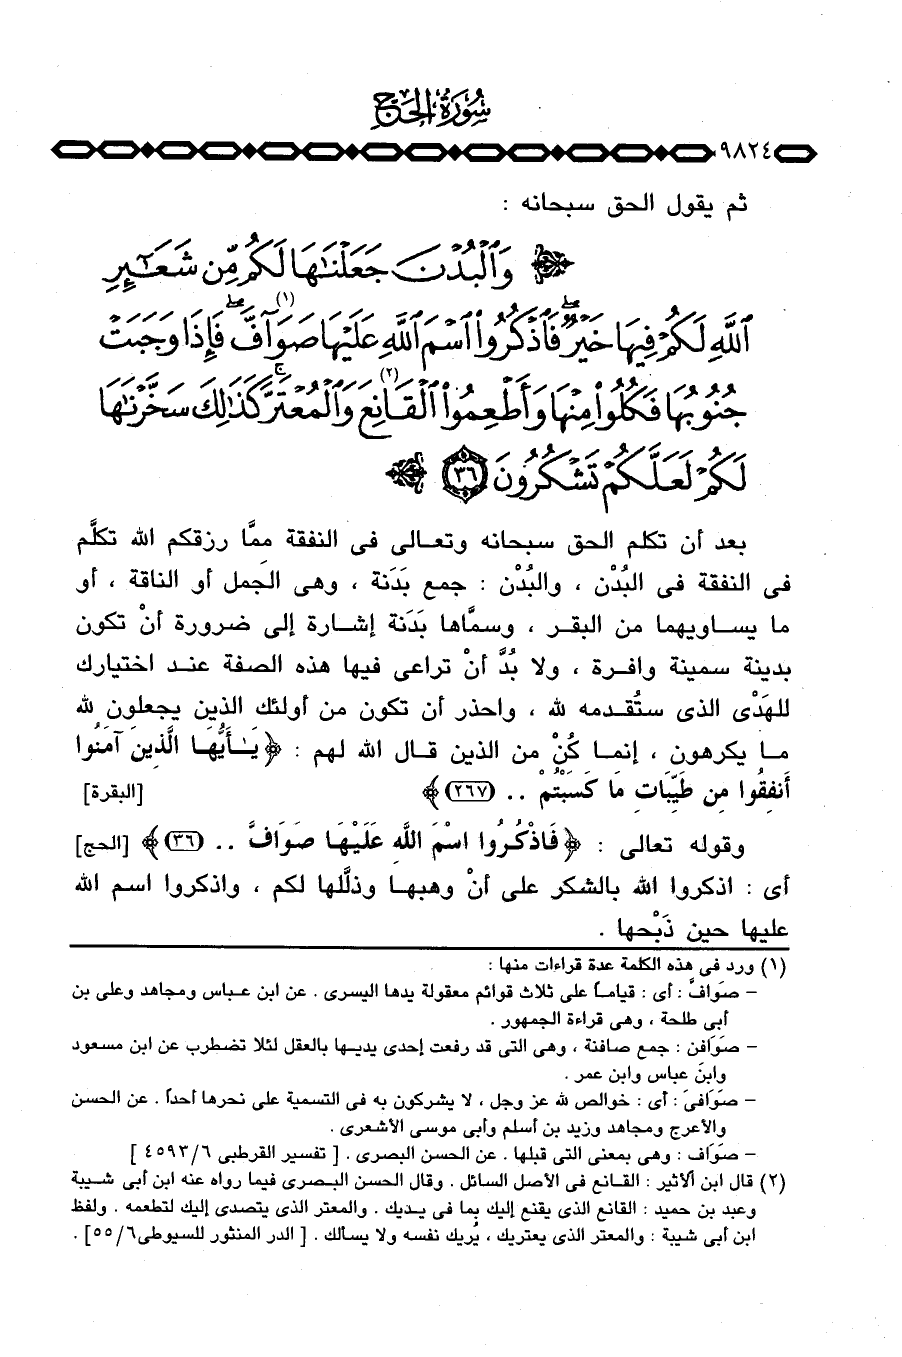 سُورَةُ الحَج
٩٨٢٤
ثم يقول الحق سبحانه :
﴿ وَٱلْبُدْنَ جَعَلْنَٰهَا لَكُم مِّن شَعَٰٓئِرِ
ٱللَّهِ لَكُمْ فِيهَا خَيْرٌۖ فَٱذْكُرُوا۟ ٱسْمَ ٱللَّهِ عَلَيْهَا صَوَآفَّۖ (١) فَإِذَا وَجَبَتْ
جُنُوبُهَا فَكُلُوا۟ مِنْهَا وَأَطْعِمُوا۟ ٱلْقَانِعَ (٢) وَٱلْمُعْتَرَّۚ كَذَٰلِكَ سَخَّرْنَٰهَا
لَكُمْ لَعَلَّكُمْ تَشْكُرُونَ ٣٦ ﴾
بعد أن تكلم الحق سبحانه وتعالى فى النفقة ممَّا رزقكم الله تكلَّم
فى النفقة فى البُدْن ، والبُدْن : جمع بَدَنة ، وهى الجمل أو الناقة ، أو
ما يساويهما من البقر ، وسمَّاها بَدَنة إشارة إلى ضرورة أنْ تكون
بدينة سمينة وافرة ، ولا بُدَّ أنْ تراعى فيها هذه الصفة عند اختيارك
للهَدْى الذى ستُقدمه لله ، واحذر أن تكون من أولئك الذين يجعلون لله
ما يكرهون ، إنما كُنْ من الذين قال الله لهم : ﴿ يَـٰأَيُّهَا الَّذِينَ آمَنُوا
أَنفِقُوا مِن طَيِّبَاتِ مَا كَسَبْتُمْ .. (٢٦٧) ﴾ [البقرة]
وقوله تعالى : ﴿ فَاذْكُرُوا اسْمَ اللَّهِ عَلَيْهَا صَوَافَّ .. (٣٦) ﴾ [الحج]
أى : اذكروا الله بالشكر على أنْ وهبها وذلَّلها لكم ، واذكروا اسم الله
عليها حين ذَبْحها .
(١) ورد فى هذه الكلمة عدة قراءات منها :
– صوَافَّ : أى : قياماً على ثلاث قوائم معقولة يدها اليسرى . عن ابن عباس ومجاهد وعلى بن
أبى طلحة ، وهى قراءة الجمهور .
– صوَافن : جمع صافنة ، وهى التى قد رفعت إحدى يديها بالعقل لئلا تضطرب عن ابن مسعود
وابن عباس وابن عمر .
– صوَافىَ : أى : خوالص لله عز وجل ، لا يشركون به فى التسمية على نحرها أحداً . عن الحسن
والأعرج ومجاهد وزيد بن أسلم وأبى موسى الأشعرى .
– صوَاف : وهى بمعنى التى قبلها . عن الحسن البصرى . [ تفسير القرطبى ٤٥٩٣/٦ ]
(٢) قال ابن الأثير : القانع فى الأصل السائل . وقال الحسن البصرى فيما رواه عنه ابن أبى شيبة
وعبد بن حميد : القانع الذى يقنع إليك بما فى يديك . والمعتر الذى يتصدى إليك لتطعمه . ولفظ
ابن أبى شيبة : والمعتر الذى يعتريك ، يُريك نفسه ولا يسألك . [ الدر المنثور للسيوطى ٥٥/٦] .